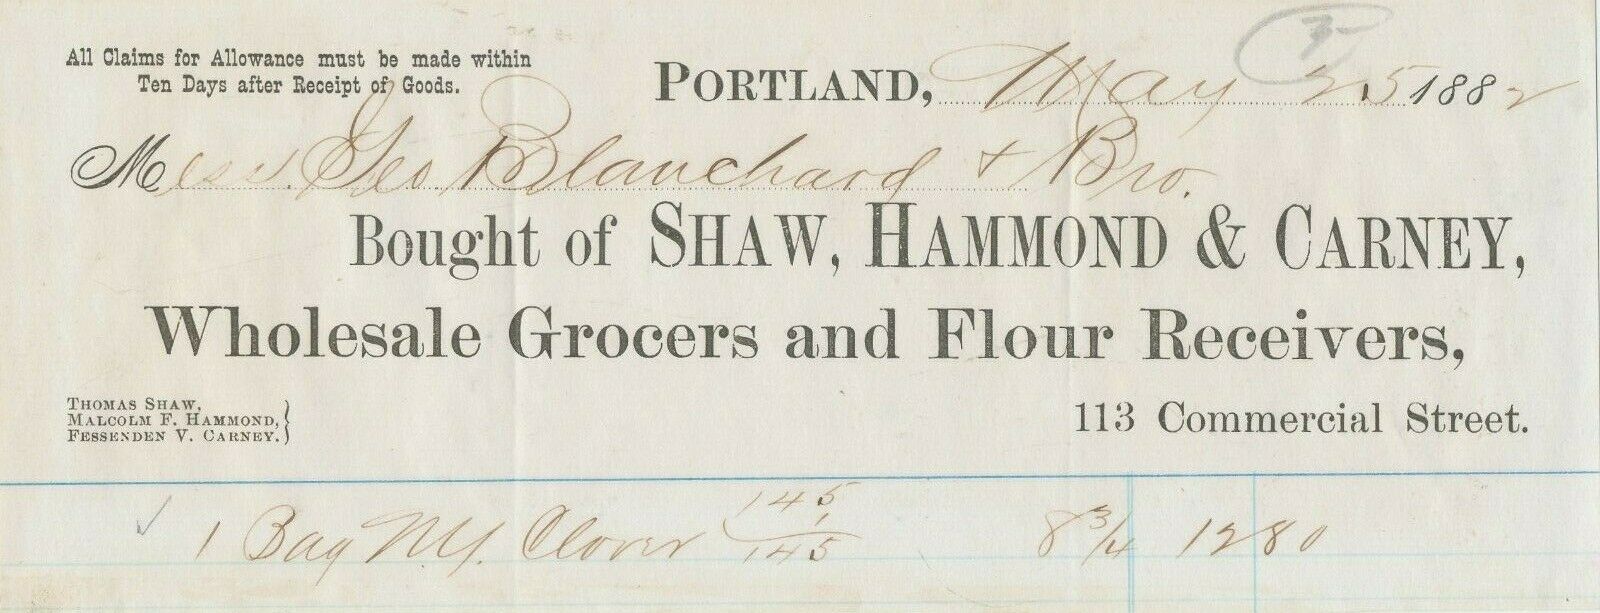 All Claims for Allowance must be made within
Ten Days after Receipt of Goods.
PORTLAND, May 25 1882
Mess. Geo Blanchard + Bro.
Bought of SHAW, HAMMOND & CARNEY,
Wholesale Grocers and Flour Receivers,
THOMAS SHAW,
MALCOLM F. HAMMOND,
FESSENDEN V. CARNEY.
113 Commercial Street.
145
1
1 Bag N.Y. Clover 145 8 3/4 12 80